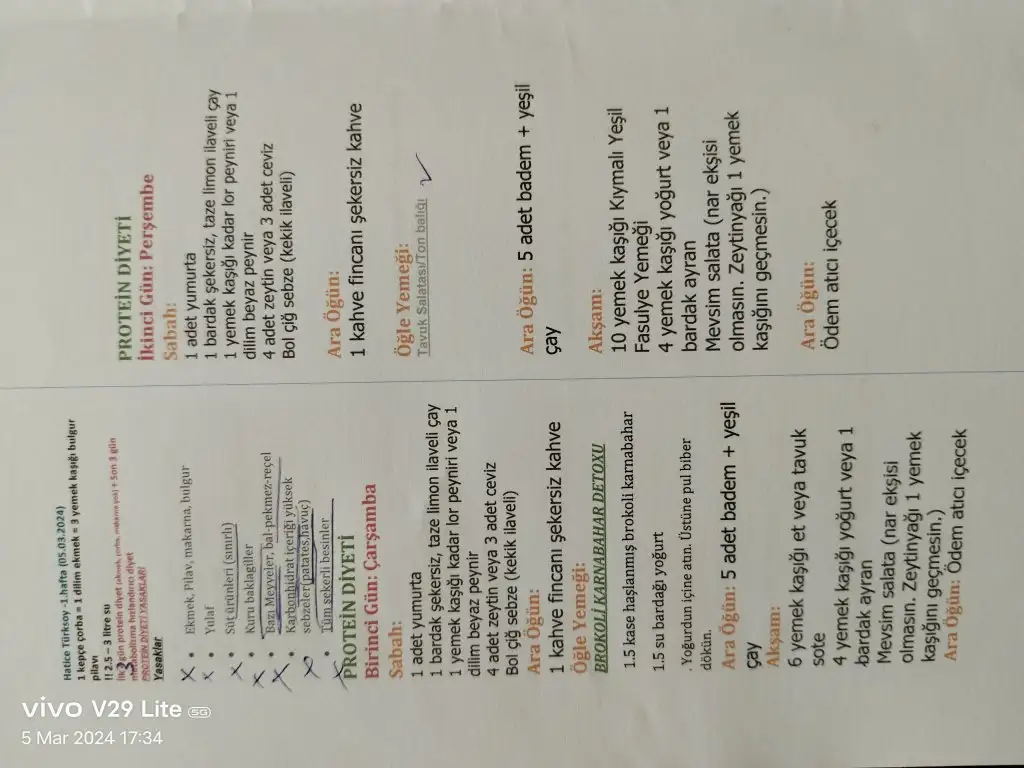 Hatice Türksoy -1.hafta (05.03.2024)
1 kepçe çorba = 1 dilim ekmek = 3 yemek kaşığı bulgur
pilavı
!! 2.5 – 3 litre su
İlk 3 gün protein diyet (ekmek, çorba, makarna yok) + Son 3 gün
metabolizma hızlandırıcı diyet
PROTEİN DİYETİ YASAKLAR!
Yasaklar
X • Ekmek, Pilav, makarna, bulgur
X • Yulaf
X • Süt ürünleri (sınırlı)
X • Kuru baklagiller
X • Bazı Meyveler, bal-pekmez-reçel
X • Karbonhidrat içeriği yüksek
sebzeler(patates,havuç)
X • Tüm şekerli besinler
PROTEİN DİYETİ
Birinci Gün: Çarşamba
Sabah:
1 adet yumurta
1 bardak şekersiz, taze limon ilaveli çay
1 yemek kaşığı kadar lor peyniri veya 1
dilim beyaz peynir
4 adet zeytin veya 3 adet ceviz
Bol çiğ sebze (kekik ilaveli)
Ara Öğün:
1 kahve fincanı şekersiz kahve
Öğle Yemeği:
BROKOLİ KARNABAHAR DETOXU
1.5 kase haşlanmış brokoli karnabahar
1.5 su bardağı yoğurt
. Yoğurdun içine atın. Üstüne pul biber
dökün.
Ara Öğün: 5 adet badem + yeşil
çay
Akşam:
6 yemek kaşığı et veya tavuk
sote
4 yemek kaşığı yoğurt veya 1
bardak ayran
Mevsim salata (nar ekşisi
olmasın. Zeytinyağı 1 yemek
kaşığını geçmesin.)
Ara Öğün: Ödem atıcı içecek
PROTEİN DİYETİ
İkinci Gün: Perşembe
Sabah:
1 adet yumurta
1 bardak şekersiz, taze limon ilaveli çay
1 yemek kaşığı kadar lor peyniri veya 1
dilim beyaz peynir
4 adet zeytin veya 3 adet ceviz
Bol çiğ sebze (kekik ilaveli)
Ara Öğün:
1 kahve fincanı şekersiz kahve
Öğle Yemeği:
Tavuk Salatası/Ton balığı ✓
Ara Öğün: 5 adet badem + yeşil
çay
Akşam:
10 yemek kaşığı Kıymalı Yeşil
Fasulye Yemeği
4 yemek kaşığı yoğurt veya 1
bardak ayran
Mevsim salata (nar ekşisi
olmasın. Zeytinyağı 1 yemek
kaşığını geçmesin.)
Ara Öğün:
Ödem atıcı içecek
vivo V29 Lite 5G
5 Mar 2024 17:34